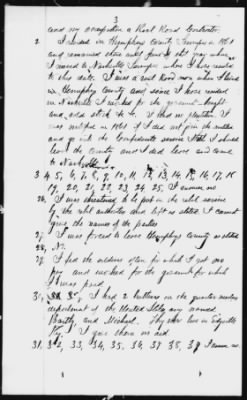 3
and my occupation a Rail Road Contractor.
2 I resided in Humphreys County Tennessee in 1861
and remained there until
I moved to Nashville Tennessee where I have resided
to this date. I was a Rail Road man when I lived
in Humphreys County and since I have resided
in Nashville I worked for the government bought
and sold stock &c. I had no plantation. I
was notified in 1861 if I did not join the
and go in the Confederate service that I should
leave the county and I did leave and come
to Nashville
3 4, 5, 6, 7, 8, 9, 10, 11, 12, 13, 14, 15, 16, 17, 18
19, 20, 21, 22, 23, 24, 25. I answer no
26, I was threatened to be put in the rebel service
by the rebel authorities and left as stated. I cannot
give the names of the parties
27, I was forced to leave Humphreys County as stated
28, No.
29, I fed the soldiers often for which I got no
pay and worked for the government for which
I was paid
30, I had 2 brothers in the quarter masters
department of the United States army named
Bartly and Michael. They now live in
Ky. I gave them no aid
31, 32, 33, 34, 35, 36, 37, 38, 39 I answer no